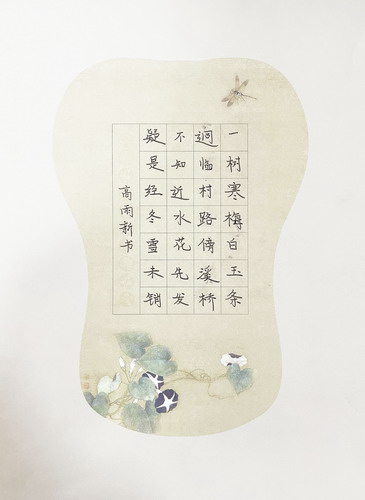 一树寒梅白玉条
迥临村路傍溪桥
不知近水花先发
疑是经冬雪未销
高雨新书